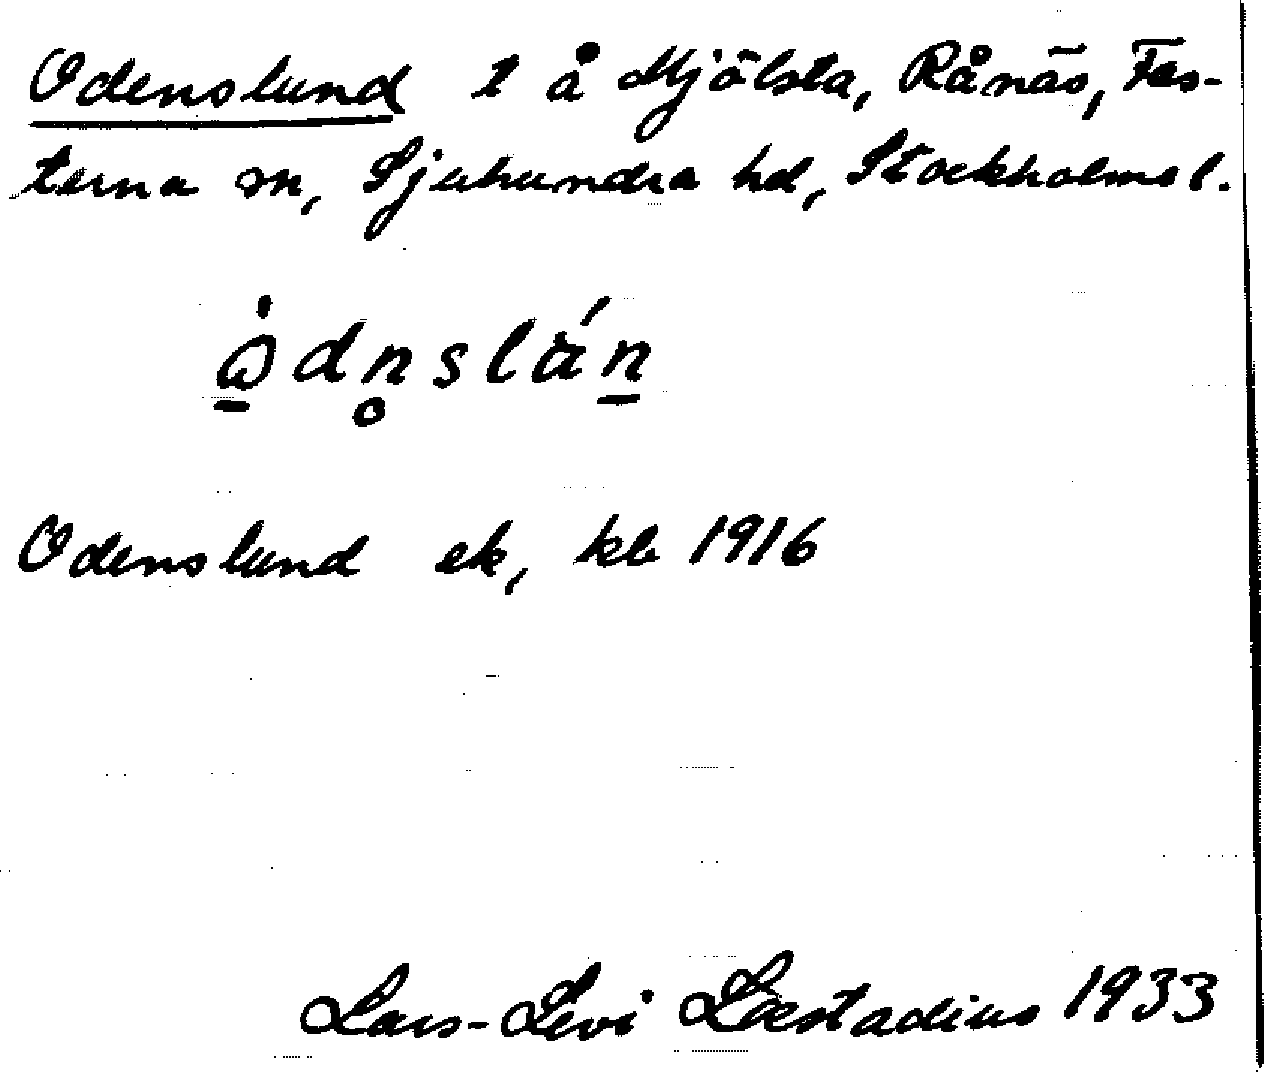 Odenslund t å Mjölsta, Rånäs, Fas-
terna sn, Sjuhundra hd, Stockholms l.
Odenslund ek, kb 1916
Lars-Levi Læstadius 1933